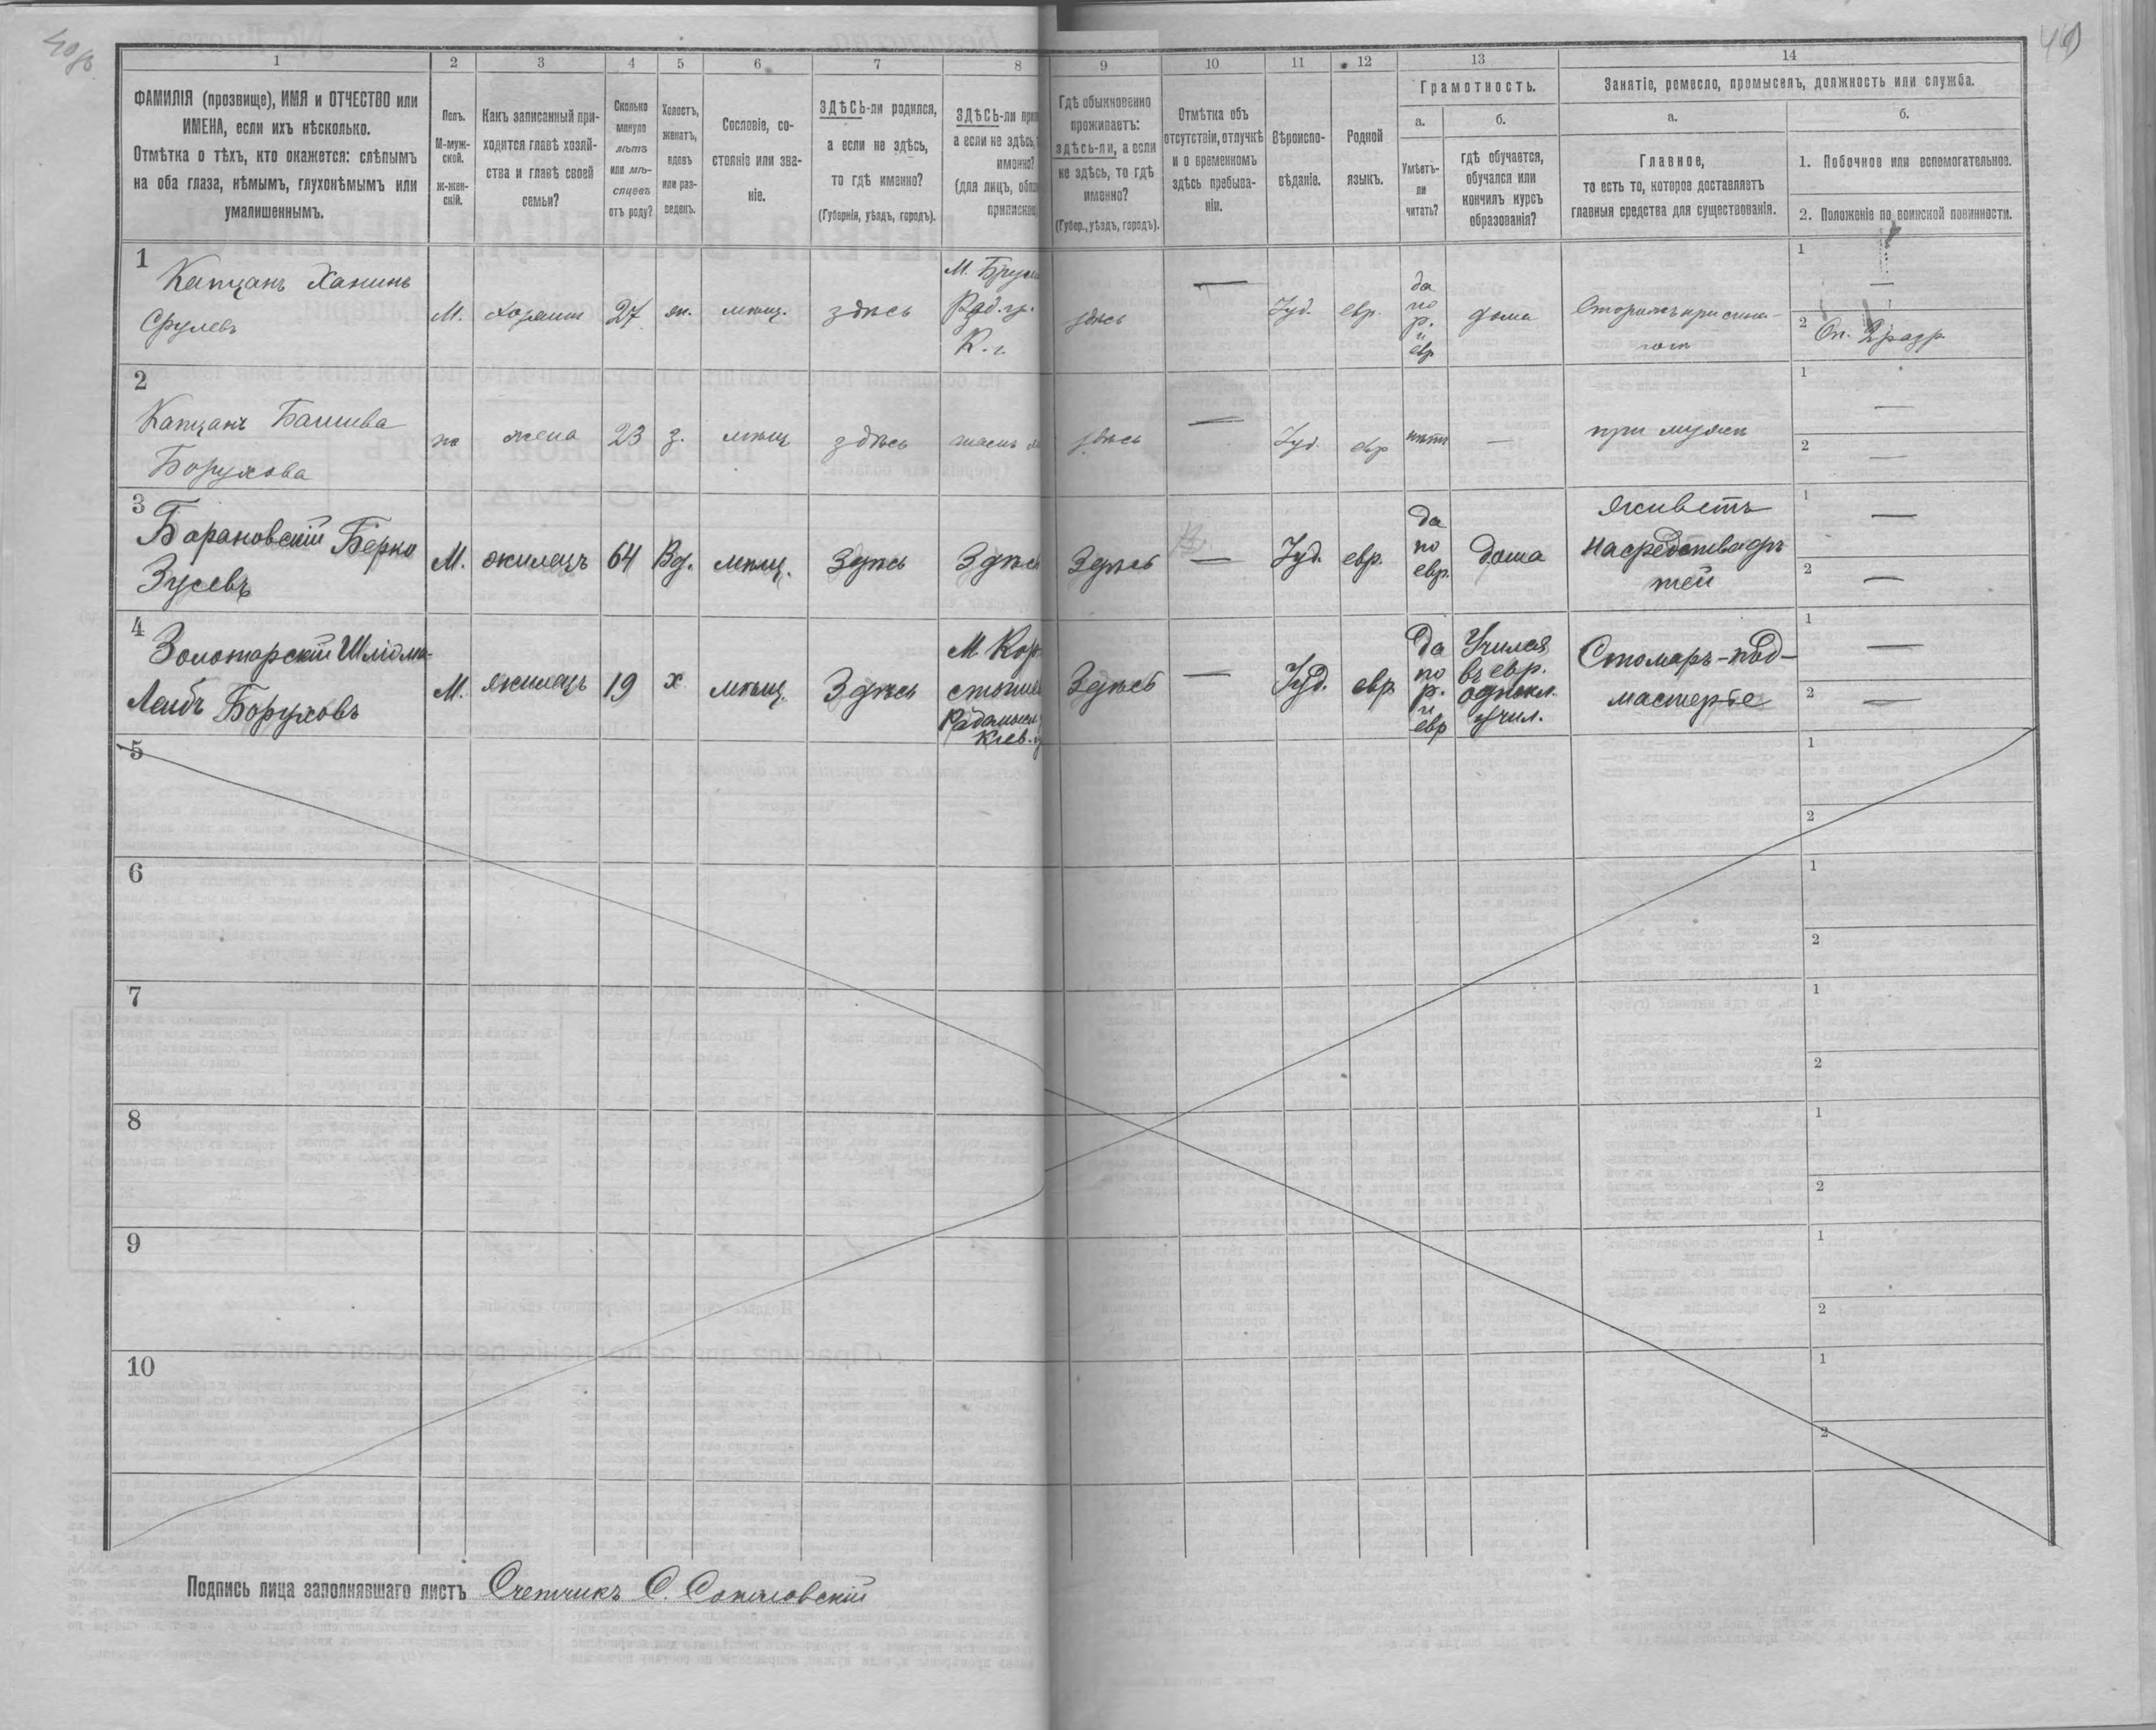 1 2 3 4 5 6 7 8 9 10 11 12 13 14
ФАМИЛІЯ (прозвище), ИМЯ и ОТЧЕСТВО или
ИМЕНА, если ихъ нѣсколько.
Отмѣтка о тѣхъ, кто окажется: слѣпымъ
на оба глаза, нѣмымъ, глухонѣмымъ или
умалишеннымъ.
Полъ.
М-муж-
ской.
Ж-жен-
скій.
Какъ записанный при-
ходится главѣ хозяй-
ства и главѣ своей
семьи?
Сколько
минуло
лѣтъ
или мѣ-
сяцевъ
отъ роду?
Холостъ,
женатъ,
вдовъ
или раз-
веденъ.
Сословіе, со-
стояніе или зва-
ніе.
ЗДѢСЬ-ли родился,
а если не здѣсь,
то гдѣ именно?
(Губернія, уѣздъ, городъ).
ЗДѢСЬ-ли
а если не здѣсь,
именно?
(для лицъ,
Гдѣ обыкновенно
проживаетъ:
здѣсь-ли, а если
не здѣсь, то гдѣ
именно?
(Губер., уѣздъ, городъ).
Отмѣтка объ
отсутствіи, отлучкѣ
и о временномъ
здѣсь пребыва-
ніи.
Вѣроиспо-
вѣданіе.
Родной
языкъ.
Грамотность.
а.
Умѣетъ-
ли
читать?
б.
гдѣ обучается,
обучался или
кончилъ курсъ
образованія?
Занятіе, ремесло, промыселъ, должность или служба.
а.
Главное,
то есть то, которое доставляетъ
главныя средства для существованія.
б.
1. Побочное или вспомогательное.
2. Положеніе по воинской повинности.
1
Капцанъ Ханинъ
Срулевъ
М.
хозяинъ
27
жн.
мѣщ.
здѣсь
М.
Рад. у.
К. г.
здѣсь
—
Іуд.
евр.
да
по
р.
и
евр
дома
Сторожъ при сина-
гогѣ
1 —
2 Оп. 2 разр
2
Капцанъ Башива
Борухова
ж
жена
23
з.
мѣщ
здѣсь
тамъ
здѣсь
—
Іуд.
евр
нѣтъ
—
при мужѣ
1 —
2 —
3
Барановскій Берко
Зусевъ
М.
жилецъ
64
Вд.
мѣщ.
Здѣсь
Здѣсь
Здѣсь
—
Іуд.
евр.
да
по
евр.
дома
Живетъ
на средства дѣ
тей
1 —
2 —
4
Золотарскій Шліома-
Лейбъ Боруховъ
М.
жилецъ
19
х
мѣщ.
Здѣсь
М. Кор
Радомысл
Кіев.
Здѣсь
—
Іуд.
евр
да
по
р.
и
евр
Учился
въ евр.
однокл.
учил.
Столяръ-под-
мастерье
1 —
2 —
5
1
2
6
1
2
7
1
2
8
1
2
9
1
2
10
1
2
Подпись лица заполнявшаго листъ Счетчикъ С.